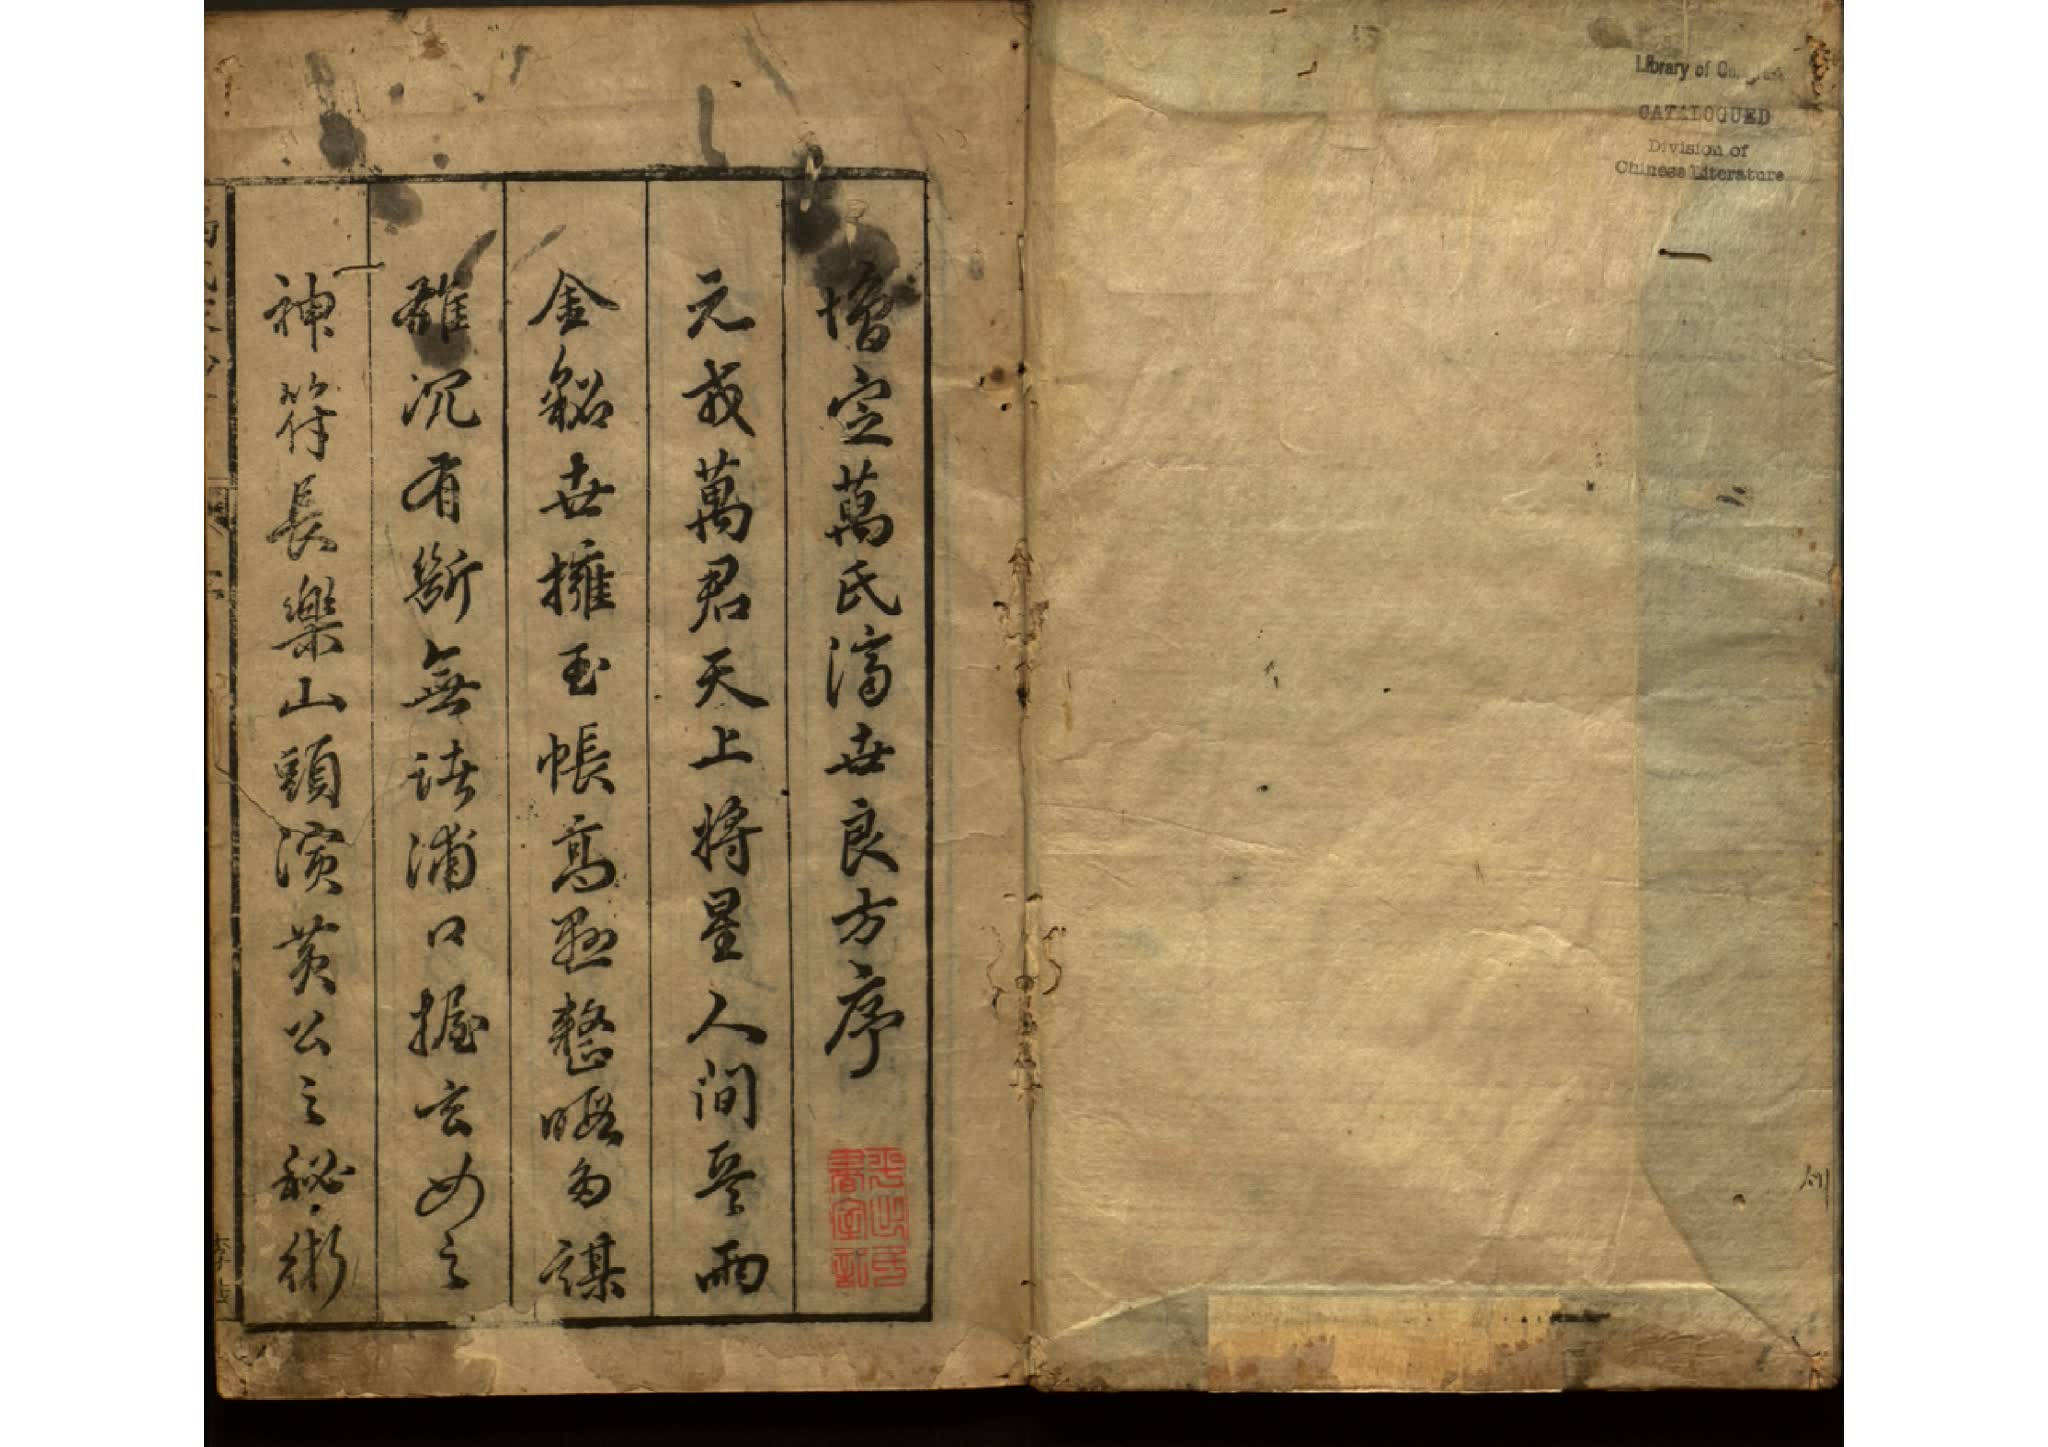 Library of Congress
CATALOGUED
Division of
Chinese Literature
增定萬氏濟世良方序
平出氏
書室記
元戎萬君天上將星人間雨
金貂世擁玉帳高懸整暇多謀
雄沉有斷無諸浦口握玄女之
神符長樂山頭演黃公之秘術